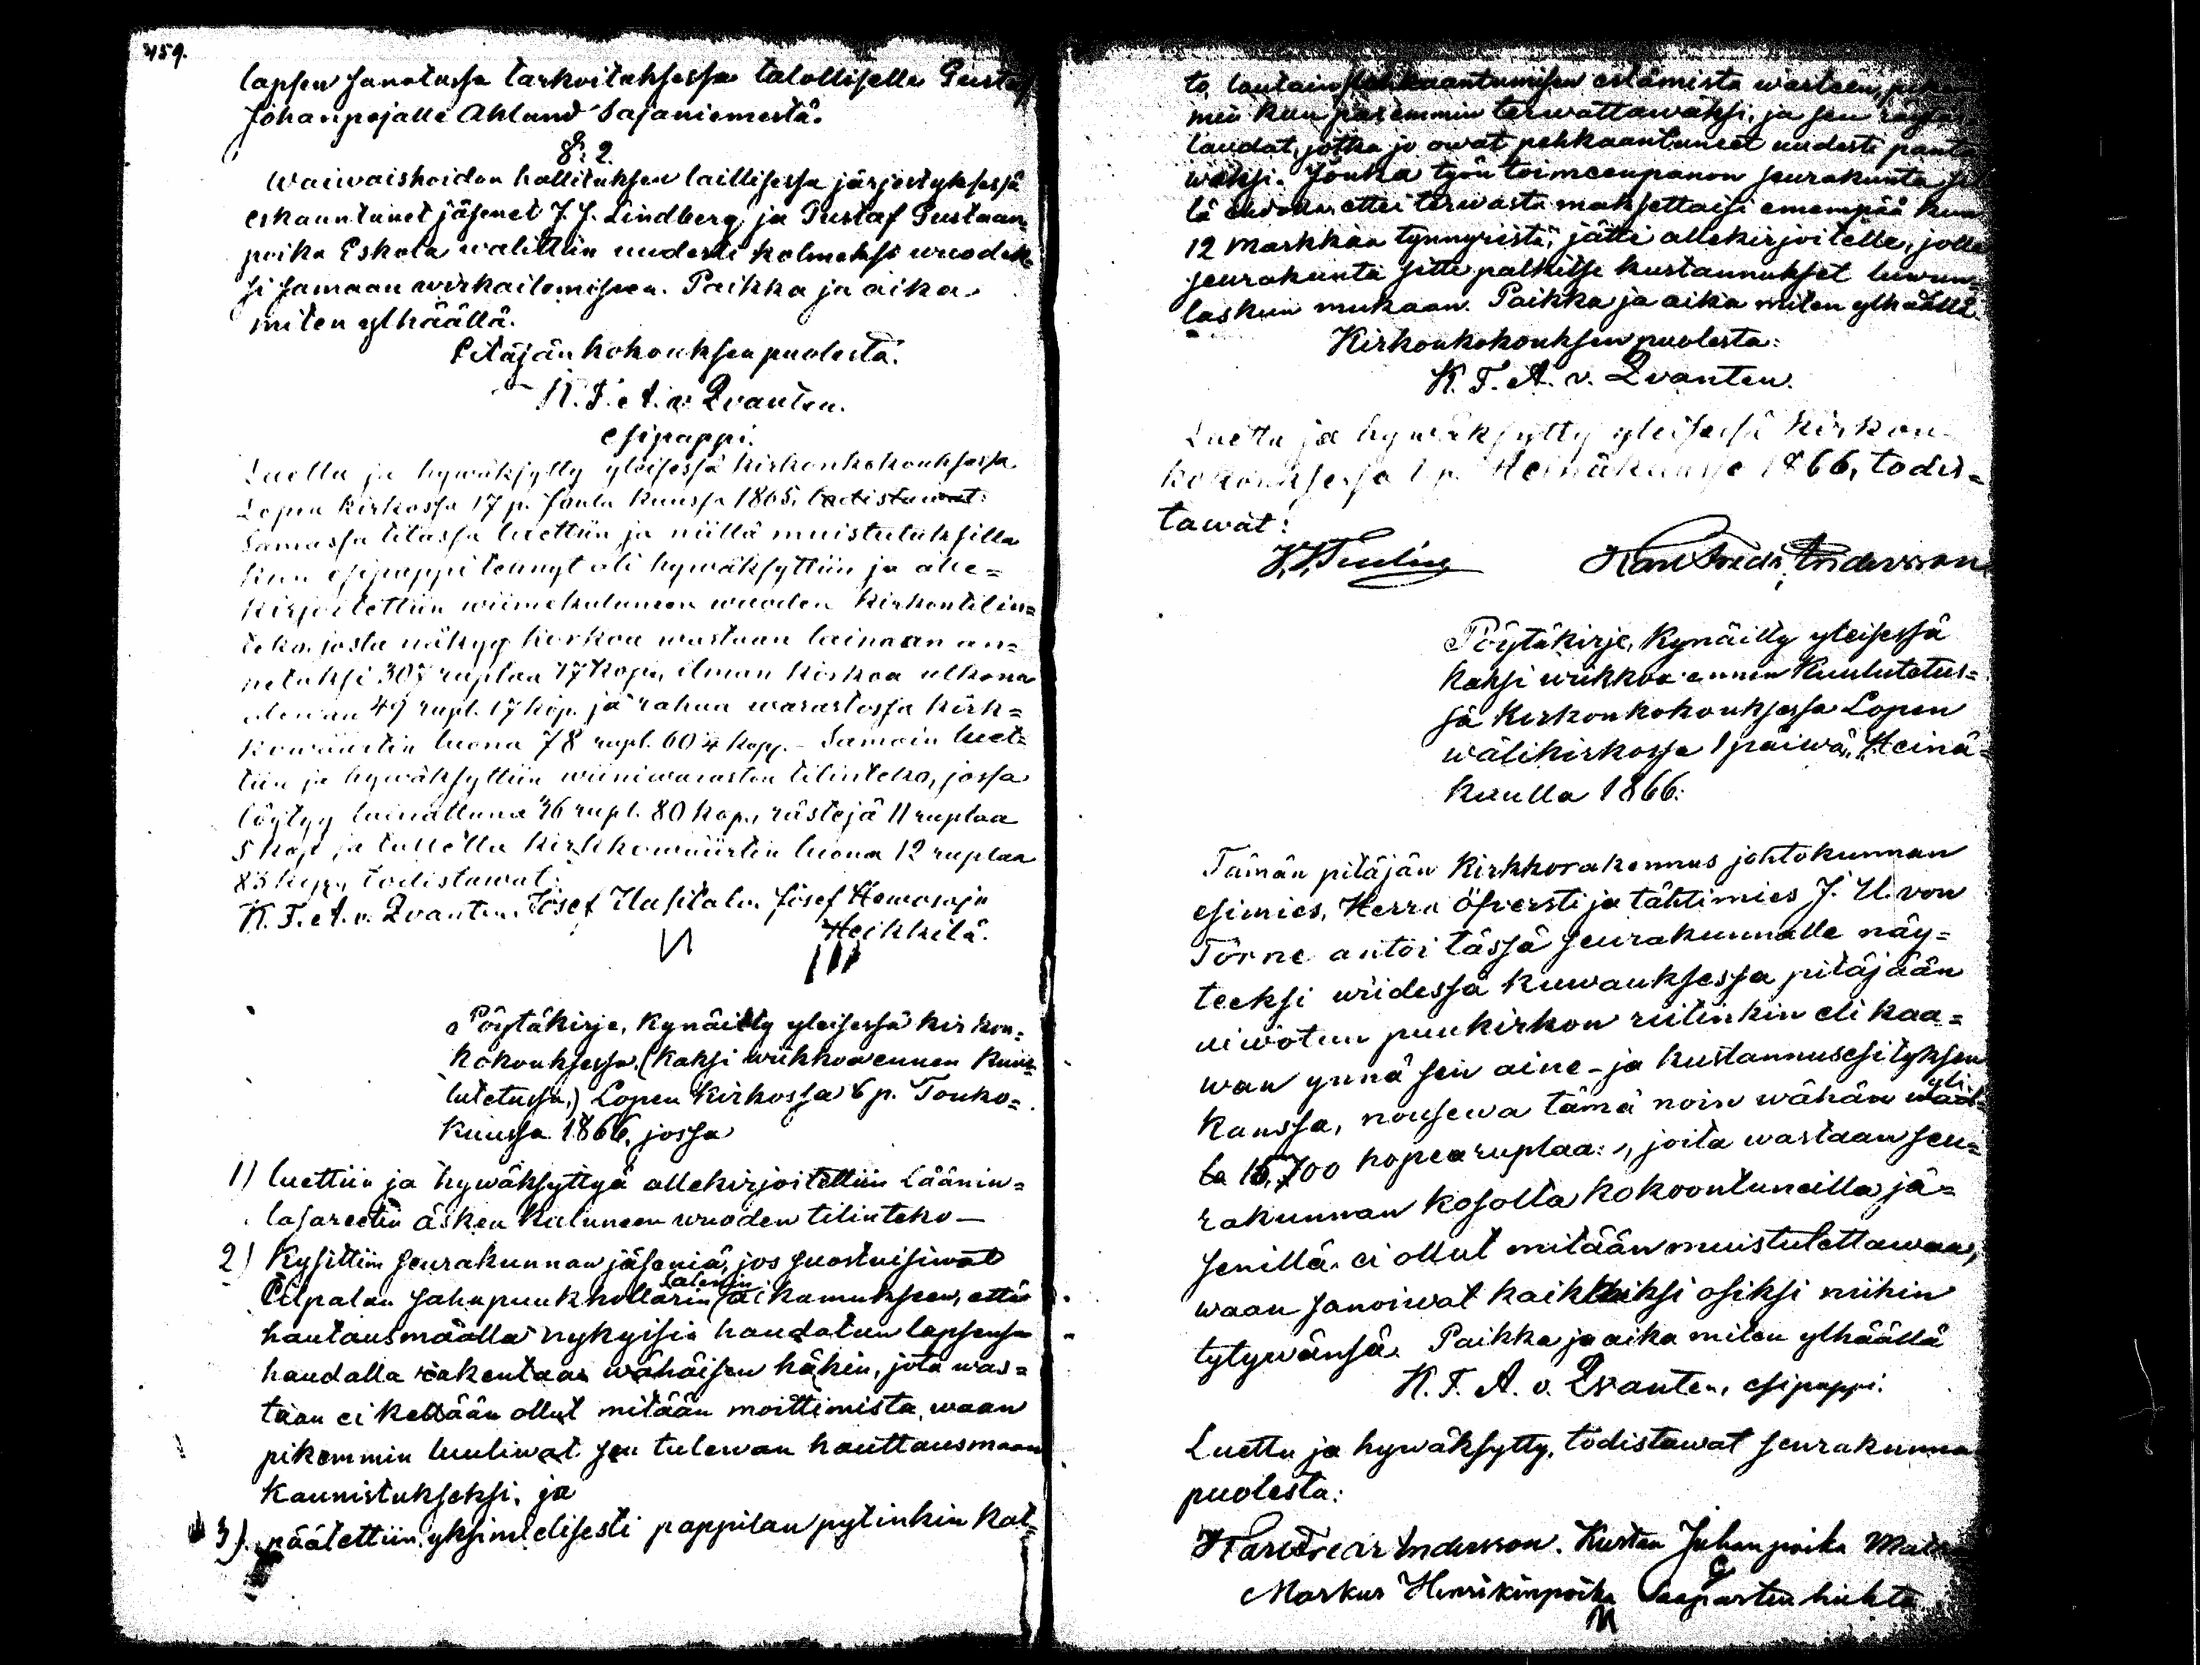 459.
lapsen sanotussa tarkoituksessa talolliselle Gustaf
Johanpojalle Ahlund Sajaniemestä.
§: 2.
Waiwaishoidon hallituksen laillisessa järjestyksessä
eskaantunet jäsenet J. J. Lindberg ja Gustaf Gustaan
poika Eskola walittiin uudesti kolmeksi wuodek-
si samaan wirkailemiseen. Paikka ja aika
miten ylhäällä.
Pitäjänkokouksen puolesta:
K. F. A. v. Qvanten.
esipappi.
Luettu ja hywäksytty yleisessä kirkonkokouksessa
Lopen kirkossa 17 p. Joulu kuussa 1865, todistawat:
Samassa tilassa luettiin ja niillä muistutuksilla
kun esipappi tennyt oli hywäksyttiin ja alle=
kirjoitettiin wiimekuluneen wuoden kirkontilin=
teko, josta näkyy korkoa wastaan lainaan an=
netuksi 307 ruplaa 77 kop., ilman korkoa ulkona
olewan 49 rupl. 17 kop. ja rahaa warastossa kirk=
kowäärtin luona 78 rupl. 60 4 kopp. - Samoin luet=
tiin ja hywäksyttiin wiiniwaraston tilinteko, jossa
löytyy lainattuna 36 rupl. 80 kop., rästejä 11 ruplaa
5 kop. ja tallella kirkkowäärtin luona 12 ruplaa
83 kopp., todistawat:
K. F. A. v. Qvanten. Josef Uusitalo. Josef Hemosoja
Heikkilä.
Pöytäkirje, kynäilty yleisessä kirkon=
kokouksessa, (kaksi wiikkoa ennen kuu=
lutetussa,) Lopen kirkossa 6 p. Touko=
kuussa 1866, jossa
1) luettiin ja hywäksyttyä allekirjoitettiin Läänin=
lasareetin äsken kuluneen wuoden tilinteko —
2) Kysittiin seurakunnan jäseniä, jos suostuisiwat
Pilpalan sahapuukhollarin Salenin aikamukseen, että
hautausmäällä nykyisin haudatun lapsensa
haudalla rakentaa wähäisen häkin, jota was=
taan ei ketään ollut mitään moittimista, waan
pikemmin luuliwat sen tulewan hauttausmaan
kaunistukseksi, ja
3) päätettiin yksimielisesti pappilan pytinkin kat=
to, lautain pehkaantumisen estämistä wasteen,
min kun paremmin terwattawaksi, ja sen
laudat, jotka jo owat pehkaantuneet uudesti
waksi. Jonka työn toimeenpanon seurakunta
lä ehdolla, ettei terwasta maksettaisi enempää kun
12 markkaa tynnyristä, jätti allekirjoitelle, jolle
seurakunta sitte palkitse kustannukset luwun=
laskun mukaan. Paikka ja aika miten ylhäällä.
Kirkonkokouksen puolesta:
K. F. A. v. Qvanten.
Luettu ja hywäksytty yleisessä kirkon=
kokouksessa 1 p. Heinäkuusse 1866, todis=
tawat:
Karl Fredr. Andersson
Pöytäkirje, kynäilty yleisessä
kaksi wiikkoa ennen kuulutetus=
sa kirkonkokouksessa Lopen
wälikirkossa 1 päiwä Heinä=
kuulla 1866:
Tämän pitäjän kirkkorakennus johtokunnan
esimies, Herra Öfversti ja tähtimies J. U. von
Törne antoi tässä seurakunnalle näy=
teeksi wiidessä kuwauksessa pitäjään
aiwotun puukirkon riitinkin eli kaa=
wan ynnä sen aine- ja kustannusesityksen
kanssa, nousewa tämä noin wähän yli
la 15,700 hopearuplaa:, joita wastaan seu=
rakunnan kosolta kokoontuneilla jä=
senillä ei ollut mitään muistutettawaa,
waan sanoiwat kaikkiksi osiksi niihin
tytywänsä. Paikka ja aika miten ylhäällä
K. F. A. v. Qvanten, esipappi.
Luettu ja hywäksytty, todistawat seurakunna
puolesta:
Karl Fredr Andersson. Kustaa Juhanpoika
Markus Henrikinpoika